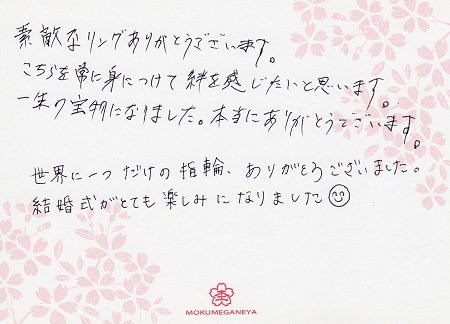 素敵なリングありがとうございます。
こちらを常に身につけて絆を感じたいと思います。
一生の宝物になりました。本当にありがとうございます。
世界に一つだけの指輪、ありがとうございました。
結婚式がとても楽しみになりました
MOKUMEGANEYA